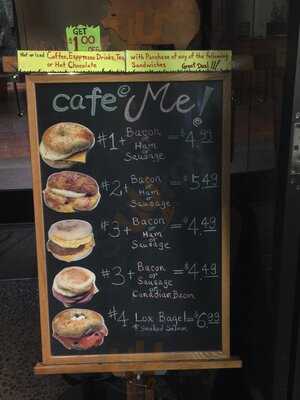 GET
$1.00
OFF
Hot or Iced Coffee, Espresso Drinks, Tea, with Purchase of any of the following
or Hot Chocolate Sandwiches Great Deal!!
cafe Me!
#1 + Bacon = $4.99
or
Ham
or
Sausage
#2 + Bacon = $5.49
or
Ham
or
Sausage
#3 + Bacon = $4.49
or
Ham
or
Sausage
#3 + Bacon = $4.49
or
Sausage
or
Canadian Bacon
#4 Lox Bagel = $6.99
Smoked Salmon